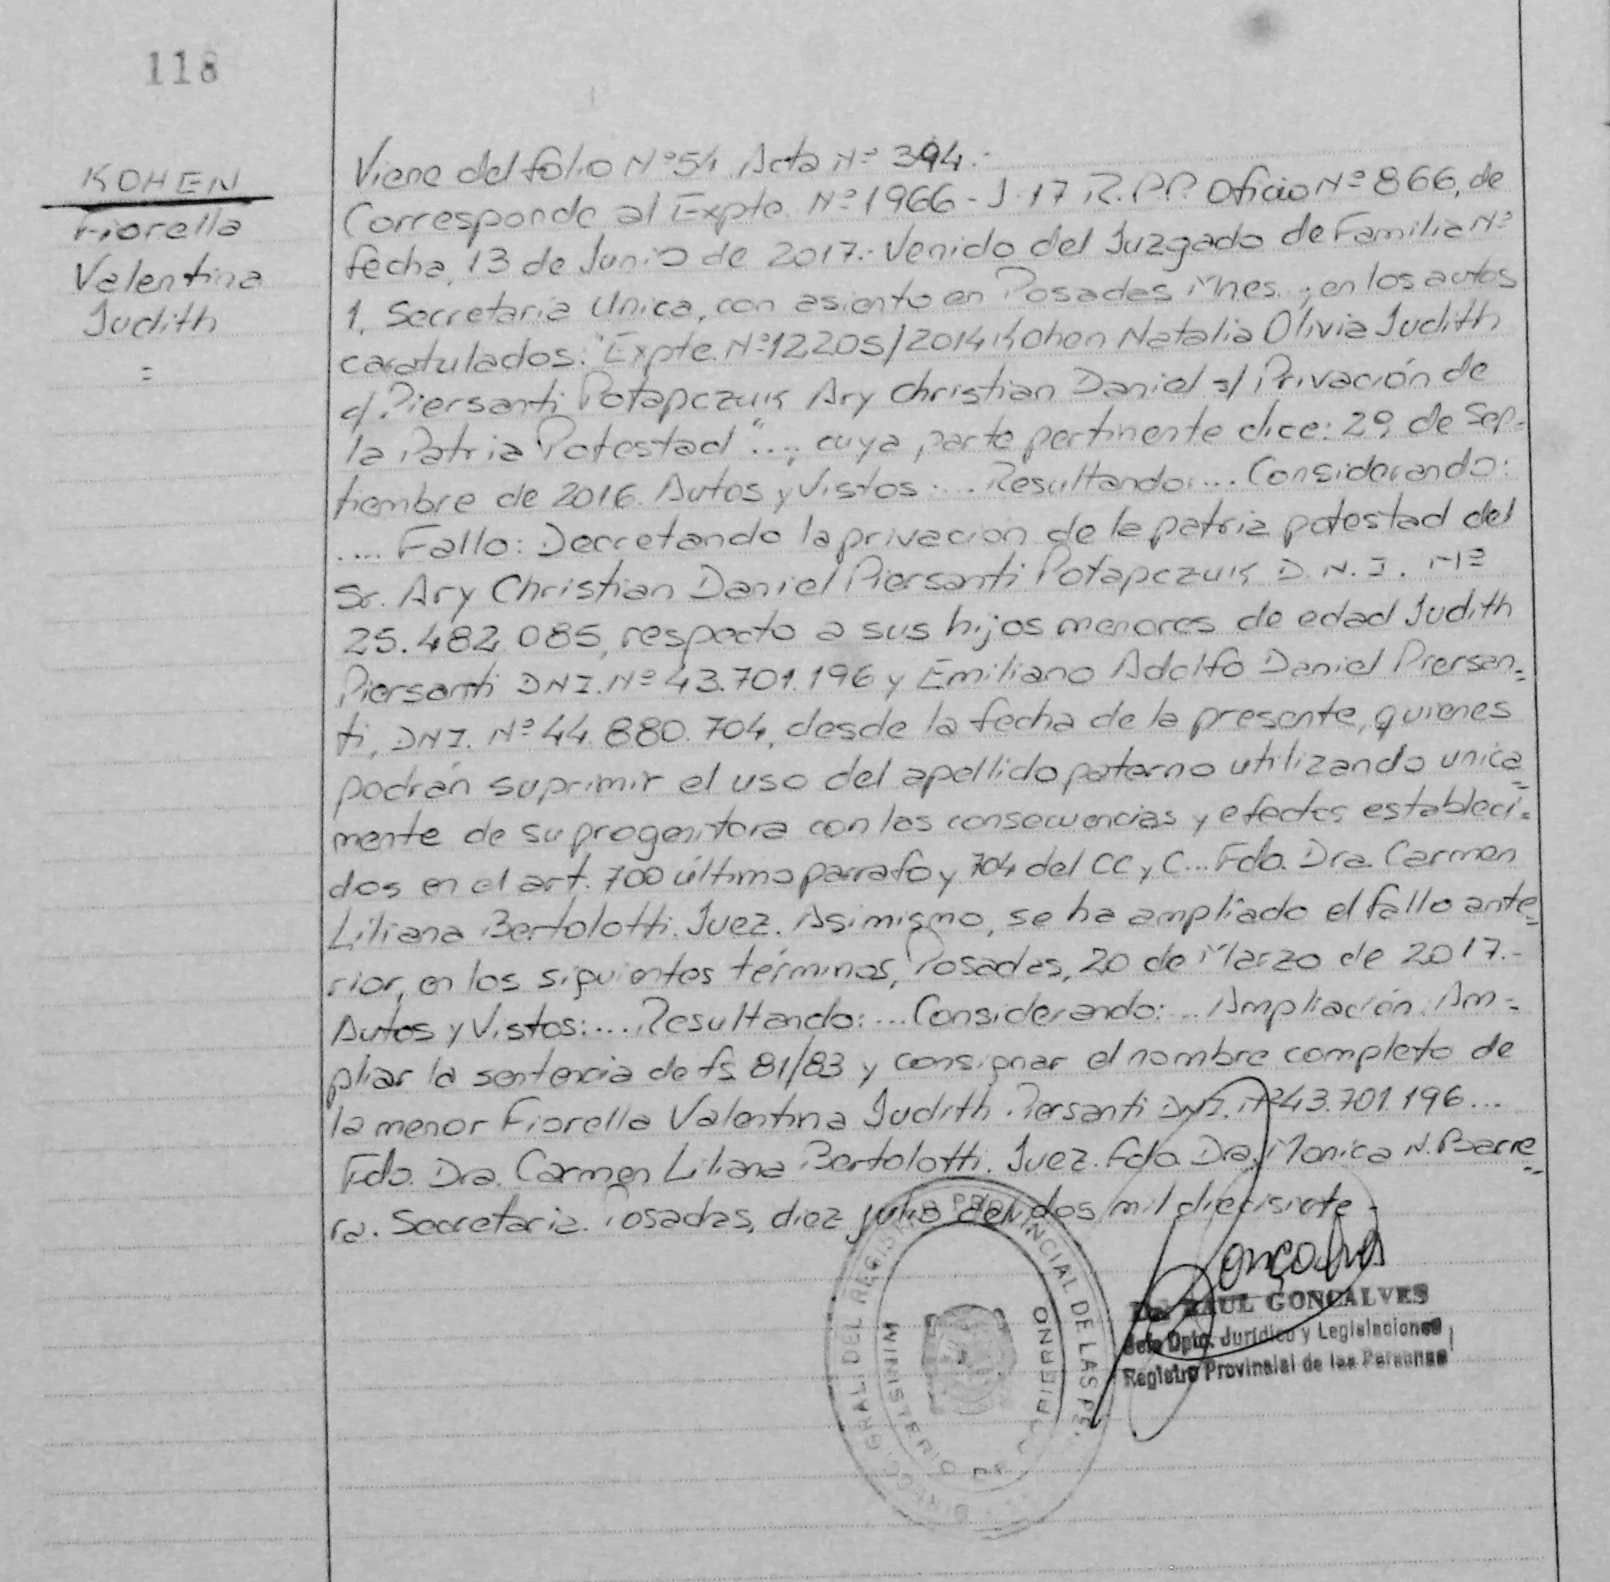 118
KOHEN
Fiorella
Valentina
Judith
=
Viene del folio Nº 54 Acta Nº 394.-
Corresponde al Expte. Nº 1966 - J-17 R.P.P. Oficio Nº 866, de
fecha, 13 de Junio de 2017.- Venido del Juzgado de Familia Nº
1, Secretaría Unica, con asiento en Posadas Mnes., en los autos
caratulados: "Expte. Nº 12205/2014 Kohen Natalia Olivia Judith
c/ Piersanti Potapczuk Ary Christian Daniel s/ Privación de
la Patria Potestad"..., cuya parte pertinente dice: 29 de Sep-
tiembre de 2016. Autos y Vistos.... Resultando:.... Considerando:
.... Fallo: Decretando la privacion de la patria potestad del
Sr. Ary Christian Daniel Piersanti Potapczuk D.N.I. Nº
25.482.085, respecto a sus hijos menores de edad Judith
Piersanti DNI. Nº 43.701.196 y Emiliano Adolfo Daniel Piersan=
ti, DNI. Nº 44.880.704, desde la fecha de la presente, quienes
podrán suprimir el uso del apellido paterno utilizando unica=
mente de su progenitora con las consecuencias y efectos estableci=
dos en el art. 700 último parrafo y 704 del CC y C... Fdo. Dra. Carmen
Liliana Bertolotti. Juez. Asimismo, se ha ampliado el fallo ante=
rior, en los siguientes términos, Posadas, 20 de Marzo de 2017.-
Autos y Vistos:.... Resultando:... Considerando:... Ampliación: Am=
pliar la sentencia de fs 81/83 y consignar el nombre completo de
la menor Fiorella Valentina Judith Piersanti DNI. Nº 43.701.196...
Fdo. Dra. Carmen Liliana Bertolotti. Juez. Fdo. Dra. Monica N. Barre=
ra. Secretaria. Posadas, diez julio del dos mil diecisiete -
DIRECC. GRAL. DEL REGISTRO PROVINCIAL DE LAS PE.
MINISTERIO DE GOBIERNO
Gonçalves
Dr. RAUL GONCALVES
Jefe Dpto. Jurídico y Legislaciones
Registro Provincial de las Personas